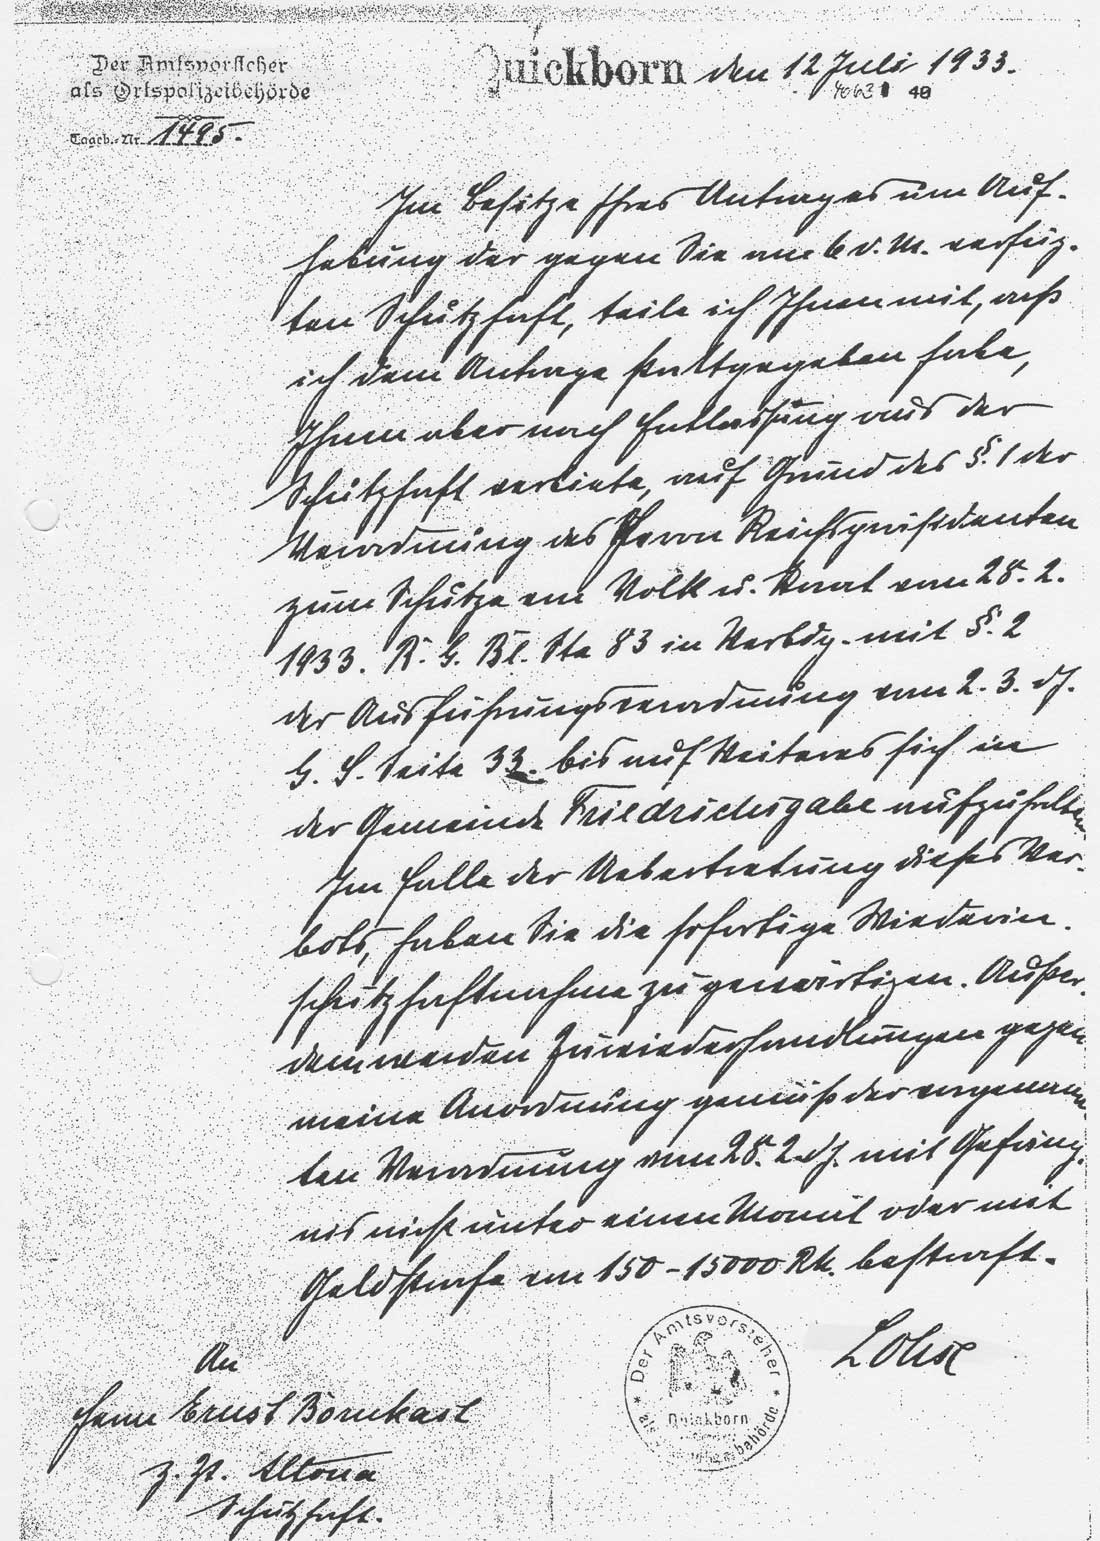 Der Amtsvorsteher
als Ortspolizeibehörde
Tageb.-Nr. 1495.
Quickborn den 12 Juli 1933.
40
Im Besitze Ihres Antrages um Auf-
hebung der gegen Sie am 6 v. M. verfüg-
ten Schutzhaft, teile ich Ihnen mit, daß
ich dem Antrage stattgegeben habe,
Ihnen aber nach Entlassung aus der
Schutzhaft verbiete, auf Grund des §. 1 der
Verordnung des Herrn Reichspräsidenten
zum Schutze von Volk u. Staat vom 28. 2.
1933. R. G. Bl. Ste 83 in Verbdg. mit §. 2
der Ausführungsverordnung vom 2. 3. dJ.
G. S. Seite 33. bis auf Weiteres sich in
der Gemeinde Friedrichsgabe aufzuhalten.
Im Falle der Uebertretung dieses Ver-
bots, haben Sie die sofortige Wiederin-
schutzhaftnahme zu gewärtigen. Außer-
dem werden Zuwiederhandlungen gegen
meine Anordnung gemäß der vorgenann-
ten Verordnung vom 28. 2. dJ. mit Gefäng-
nis nicht unter einen Monat oder mit
Geldstrafe von 150 - 15000 RM. bestraft.
Lohse
Der Amtsvorsteher
Quickborn
als Ortspolizeibehörde
An
Herrn Ernst Bornkast
z. Zt. Altona
Schutzhaft.